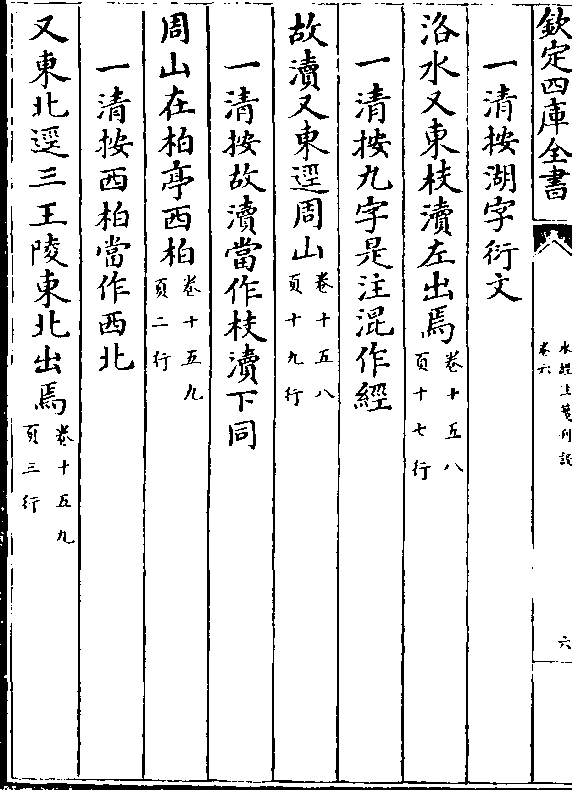 欽定四庫全書
水經注箋刊誤
卷六
六
一清按湖字衍文
洛水又東枝瀆左出焉卷十五八頁十七行
一清按九字是注混作經
故瀆又東逕周山卷十五八頁十九行
一清按故瀆當作枝瀆下同
周山在柏亭西柏卷十五九頁二行
一清按西柏當作西北
又東北逕三王陵東北出焉卷十五九頁三行